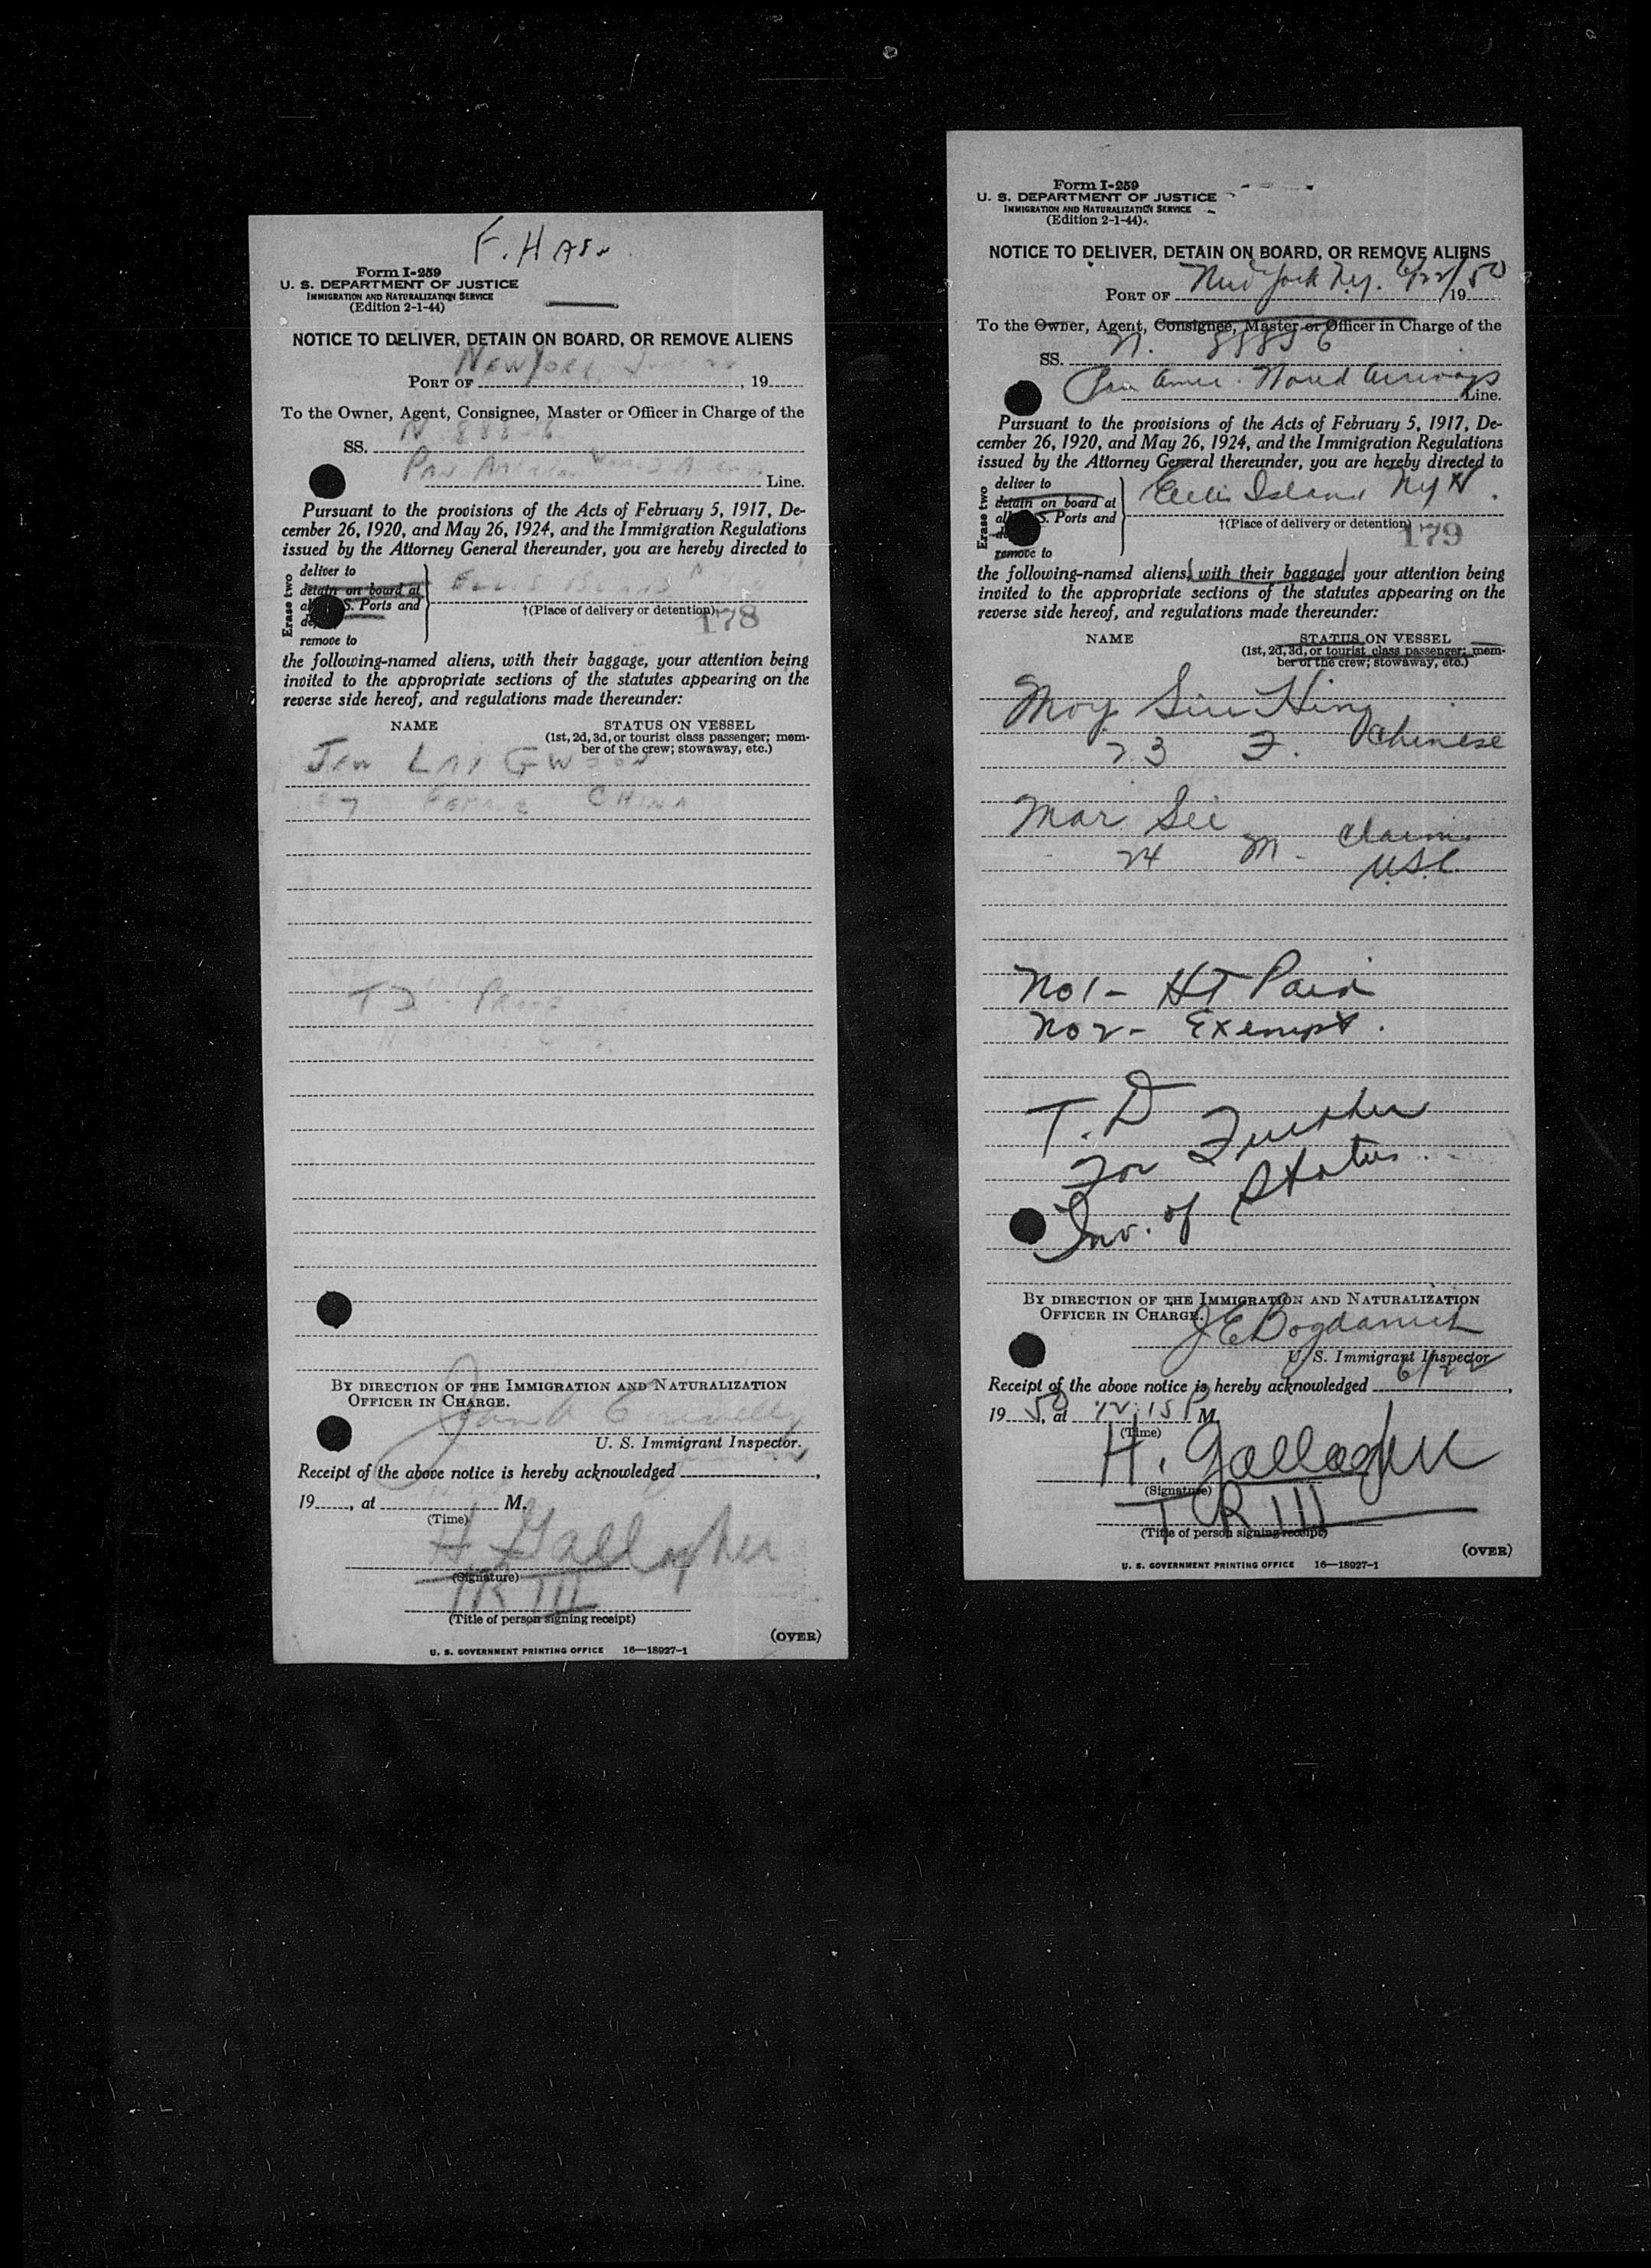 F. Hass
Form I-259
U. S. DEPARTMENT OF JUSTICE
IMMIGRATION AND NATURALIZATION SERVICE
(Edition 2-1-44)
NOTICE TO DELIVER, DETAIN ON BOARD, OR REMOVE ALIENS
New York
PORT OF , 19
To the Owner, Agent, Consignee, Master or Officer in Charge of the
SS. N
Pan American World
Line.
Pursuant to the provisions of the Acts of February 5, 1917, De-
cember 26, 1920, and May 26, 1924, and the Immigration Regulations
issued by the Attorney General thereunder, you are hereby directed to
Erase two
deliver to
detain on board at
S. Ports and
remove to
ELLIS ISLAND
†(Place of delivery or detention)
178
the following-named aliens, with their baggage, your attention being
invited to the appropriate sections of the statutes appearing on the
reverse side hereof, and regulations made thereunder:
NAME STATUS ON VESSEL
(1st, 2d, 3d, or tourist class passenger; mem-
ber of the crew; stowaway, etc.)
LAI
FEMALE CHINA
TD
BY DIRECTION OF THE IMMIGRATION AND NATURALIZATION
OFFICER IN CHARGE.
U. S. Immigrant Inspector.
Receipt of the above notice is hereby acknowledged ,
19 , at M.
(Time)
H. Gallagher
(Signature)
TR III
(Title of person signing receipt)
(OVER)
U. S. GOVERNMENT PRINTING OFFICE 16—18927-1
Form I-259
U. S. DEPARTMENT OF JUSTICE
IMMIGRATION AND NATURALIZATION SERVICE
(Edition 2-1-44)
NOTICE TO DELIVER, DETAIN ON BOARD, OR REMOVE ALIENS
PORT OF New York N.Y. 6/22/50 , 19
To the Owner, Agent, Consignee, Master or Officer in Charge of the
SS. N. 88856
Pan Amer. World Airways
Line.
Pursuant to the provisions of the Acts of February 5, 1917, De-
cember 26, 1920, and May 26, 1924, and the Immigration Regulations
issued by the Attorney General thereunder, you are hereby directed to
Erase two
deliver to
detain on board at
S. Ports and
remove to
Ellis Island NYH.
†(Place of delivery or detention)
179
the following-named aliens, with their baggage, your attention being
invited to the appropriate sections of the statutes appearing on the
reverse side hereof, and regulations made thereunder:
NAME STATUS ON VESSEL
(1st, 2d, 3d, or tourist class passenger; mem-
ber of the crew; stowaway, etc.)
Moy Siu Hing
23 F. Chinese
Mar Sei
24 M - Claims
U.S.C.
No 1 - HT Paid
No 2 - Exempt.
T. D
For Further
Inv. of Status
BY DIRECTION OF THE IMMIGRATION AND NATURALIZATION
OFFICER IN CHARGE.
J E Bogdanich
U. S. Immigrant Inspector
Receipt of the above notice is hereby acknowledged 6/22 ,
19 50, at 12:15 P M.
(Time)
H. Gallagher
(Signature)
TR III
(Title of person signing receipt)
(OVER)
U. S. GOVERNMENT PRINTING OFFICE 16—18927-1